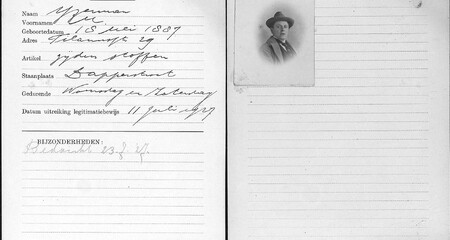 Naam
Voornamen
Geboortedatum 18 Mei 1887
Adres 29
Artikel zyden stoffen
Staanplaats Dapperstraat
Gedurende Woensdag en Zaterdag
Datum uitreiking legitimatiebewijs 11 Juli 1927
BIJZONDERHEDEN:
Bedankt